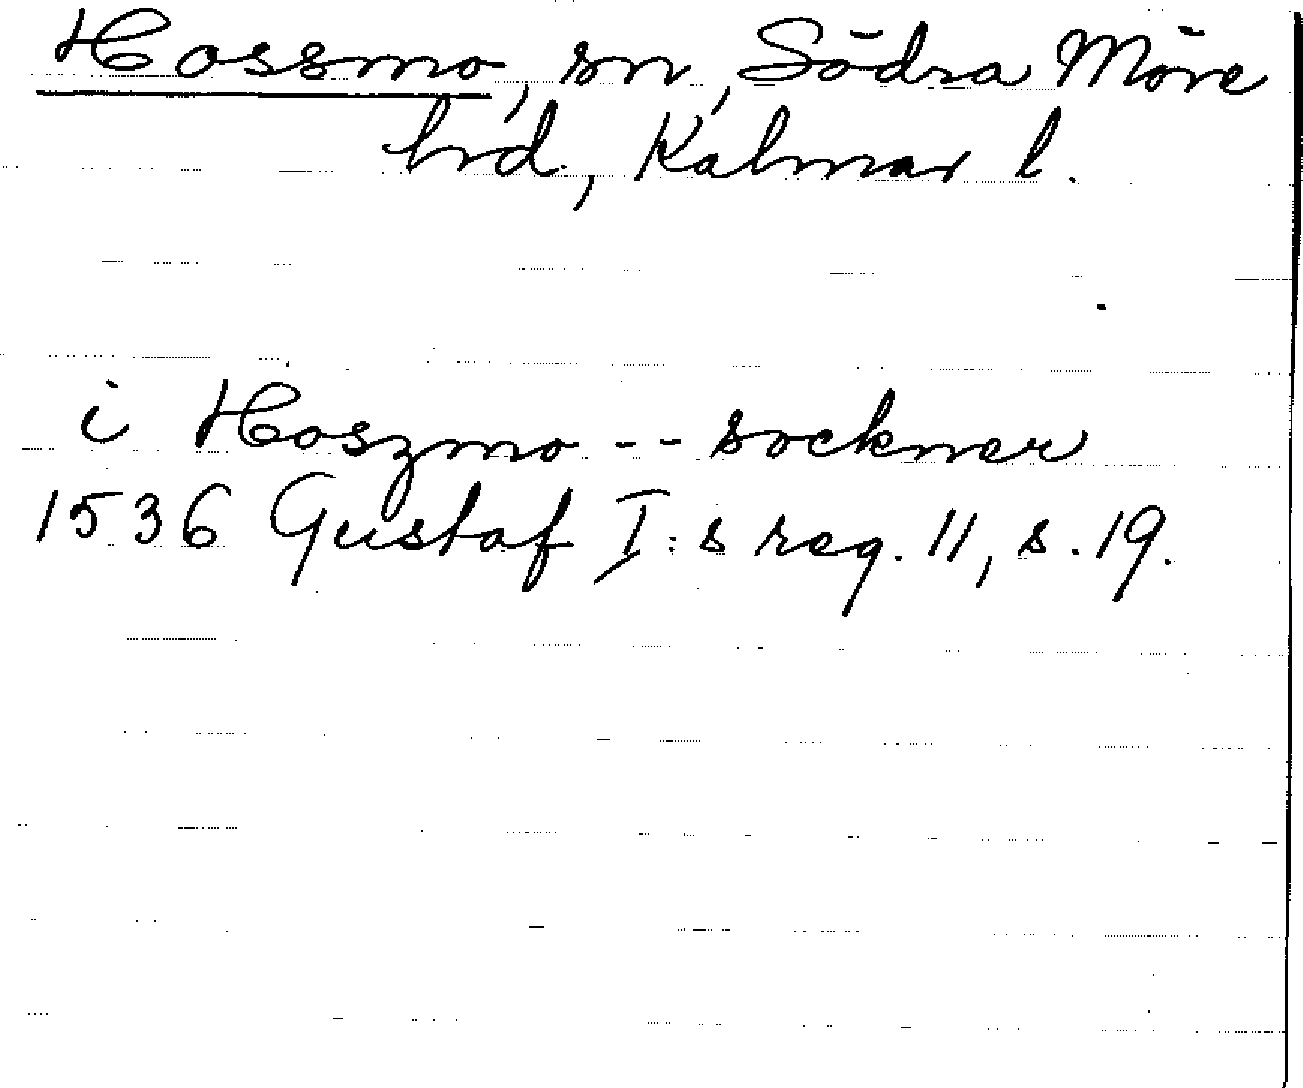 Hossmo, sn, Södra Möre
hrd, Kalmar l.
i Hoszmo -- sockner
1536 Gustaf I:s reg. 11, s. 19.